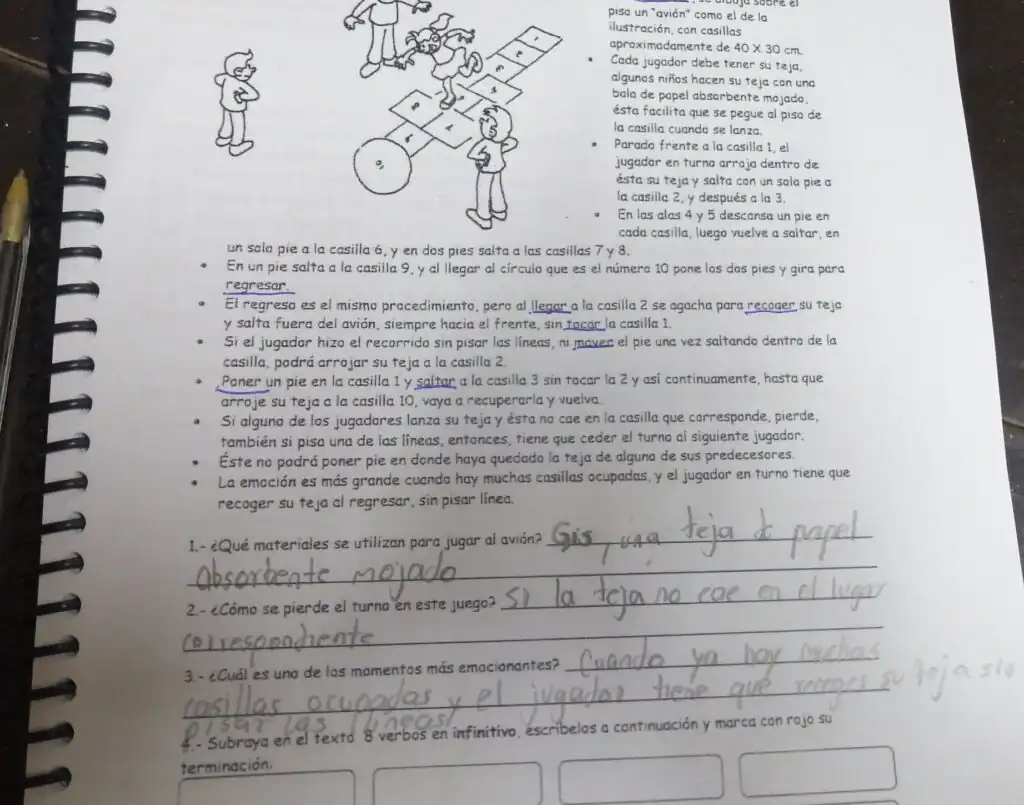 piso un "avión" como el de la
ilustración, con casillas
aproximadamente de 40 X 30 cm.
• Cada jugador debe tener su teja,
algunos niños hacen su teja con una
bola de papel absorbente mojado,
ésta facilita que se pegue al piso de
la casilla cuando se lanza.
• Parado frente a la casilla 1, el
jugador en turno arroja dentro de
ésta su teja y salta con un solo pie a
la casilla 2, y después a la 3.
• En las alas 4 y 5 descansa un pie en
cada casilla, luego vuelve a saltar, en
un solo pie a la casilla 6, y en dos pies salta a las casillas 7 y 8.
• En un pie salta a la casilla 9, y al llegar al círculo que es el número 10 pone los dos pies y gira para
regresar.
• El regreso es el mismo procedimiento, pero al llegar a la casilla 2 se agacha para recoger su teja
y salta fuera del avión, siempre hacia el frente, sin tocar la casilla 1.
• Si el jugador hizo el recorrido sin pisar las líneas, ni mover el pie una vez saltando dentro de la
casilla, podrá arrojar su teja a la casilla 2.
• Poner un pie en la casilla 1 y saltar a la casilla 3 sin tocar la 2 y así continuamente, hasta que
arroje su teja a la casilla 10, vaya a recuperarla y vuelva.
• Si alguno de los jugadores lanza su teja y ésta no cae en la casilla que corresponde, pierde,
también si pisa una de las líneas, entonces, tiene que ceder el turno al siguiente jugador.
• Éste no podrá poner pie en donde haya quedado la teja de alguno de sus predecesores.
• La emoción es más grande cuando hay muchas casillas ocupadas, y el jugador en turno tiene que
recoger su teja al regresar, sin pisar línea.
1.- ¿Qué materiales se utilizan para jugar al avión? Gis, una teja de papel
absorbente mojado
2.- ¿Cómo se pierde el turno en este juego? Si la teja no cae en el lugar
correspondiente
3.- ¿Cuál es uno de los momentos más emocionantes? Cuando ya hay muchas
casillas ocupadas y el jugador tiene que recoger su teja sin
pisar las líneas
4.- Subraya en el texto 8 verbos en infinitivo, escríbelos a continuación y marca con rojo su
terminación.